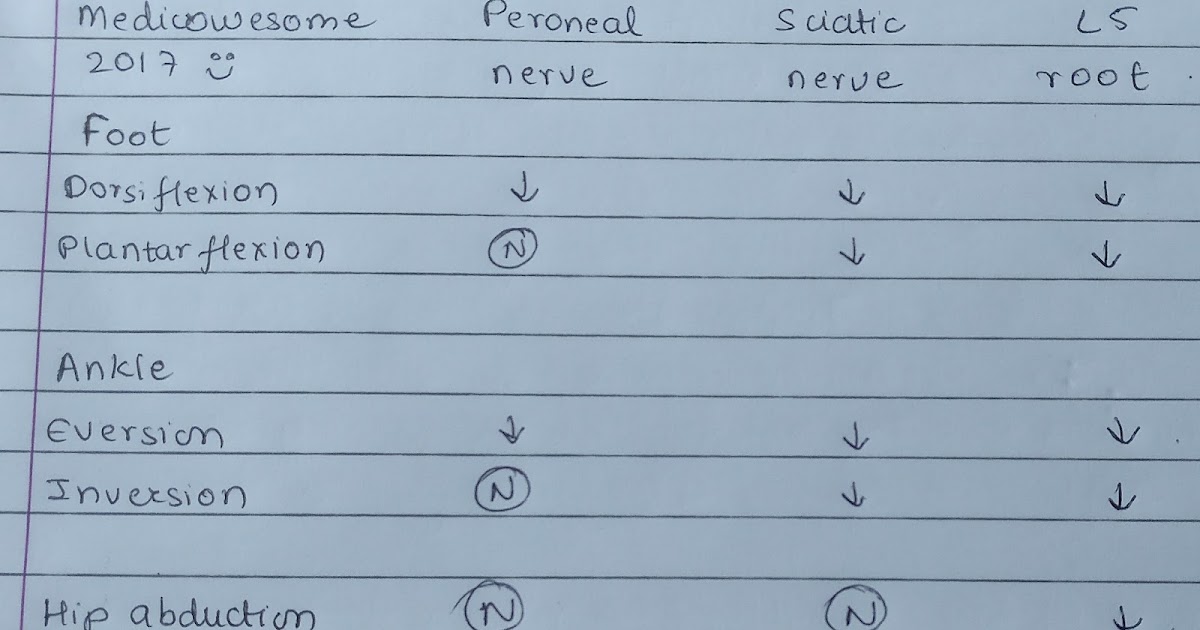 Medicowesome Peroneal Sciatic L5
2017 nerve nerve root
Foot
Dorsiflexion ↓ ↓ ↓
Plantar flexion N ↓ ↓
Ankle
Eversion ↓ ↓ ↓
Inversion N ↓ ↓
Hip abduction N N ↓